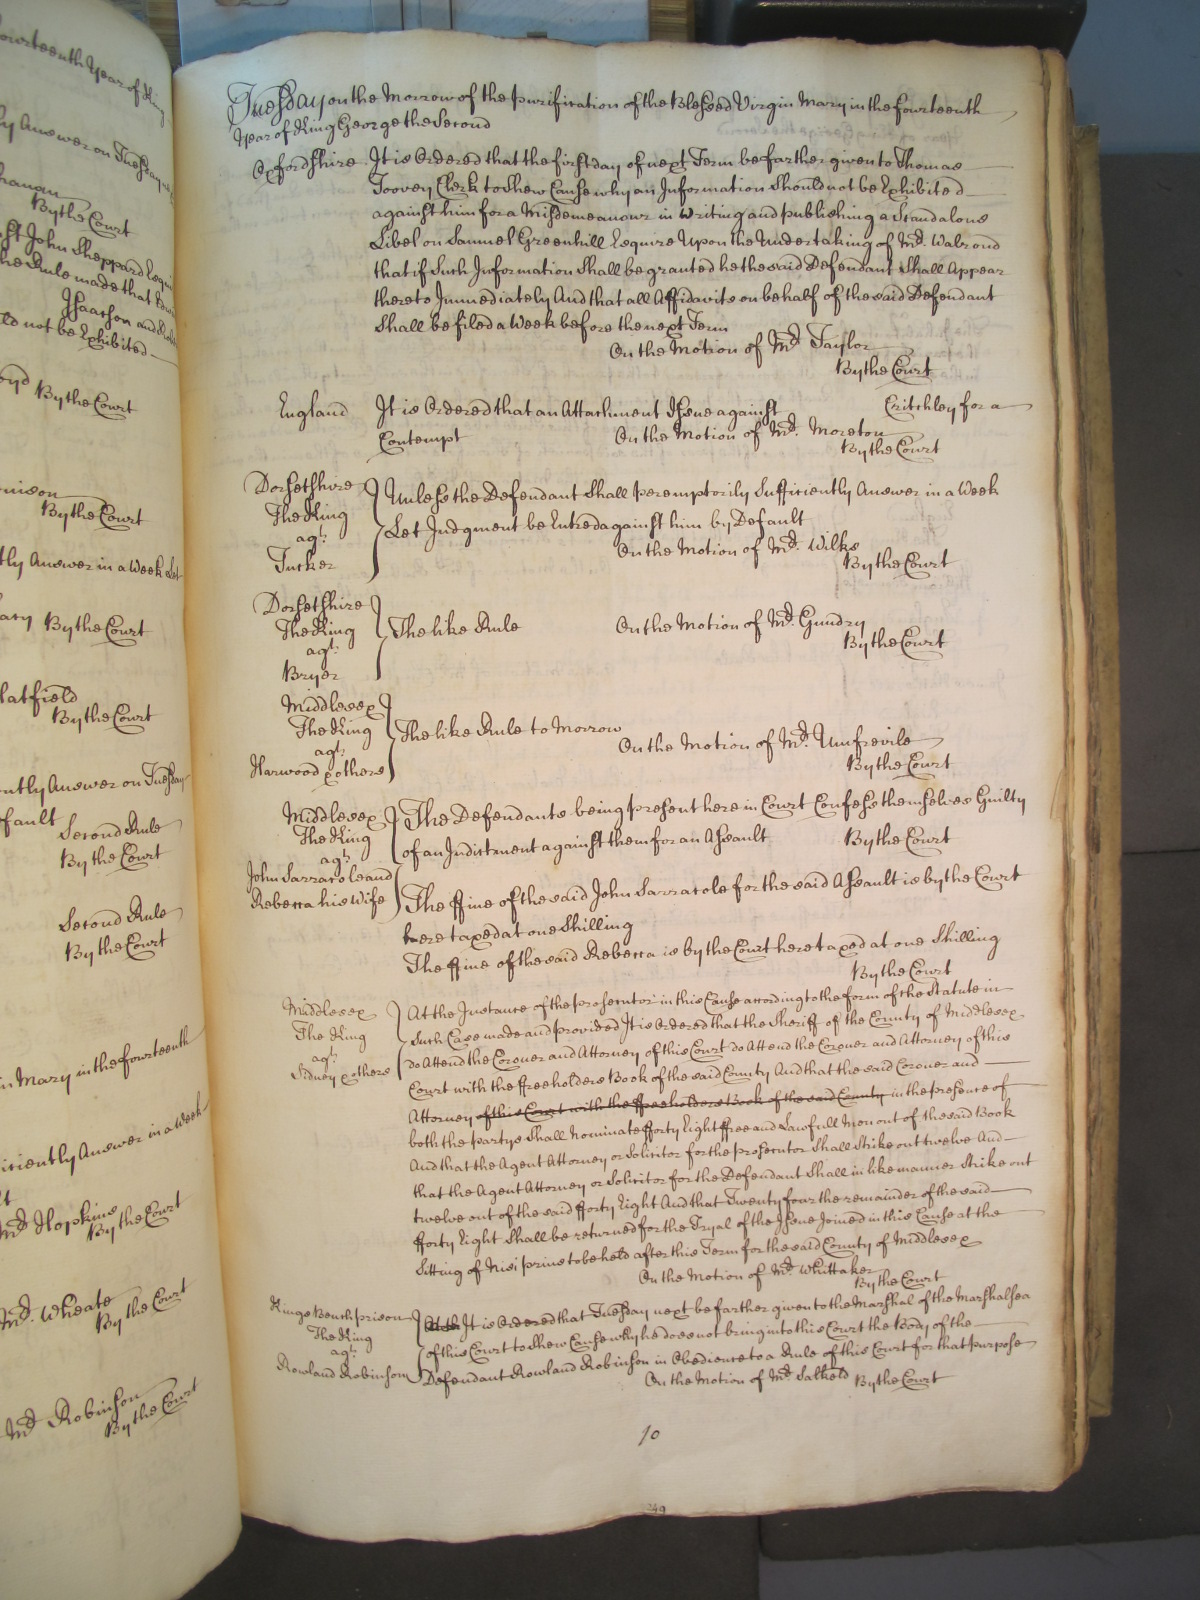 ourteenth Year of King
ly Answer on Tuesday
By the Court
st John Sheppard Esqui
he Rule made that
Isaacson and
ld not be Exhibited
oyd By the Court
nison
By the Court
tly Answer in a Week Let
By the Court
latfield
By the Court
ntly Answer on Tuesday
fault
Second Rule
By the Court
Second Rule
By the Court
in Mary in the fourteenth
iciently Answer in a Week
Mr. Hopkins
By the Court
Mr. Wheate
By the Court
Mr. Robinson
By the Court
Tuesday on the Morrow of the purification of the Blessed Virgin Mary in the fourteenth
Year of King George the Second
Oxfordshire It is Ordered that the first day of next Term be farther given to Thomas
Toovey Clerk to Shew Cause why an Information Should not be Exhibited
against him for a Misdemeanour in Writing and publishing a Scandalous
Libel on Samuel Greenhill Esquire Upon the Undertaking of Mr. Walrond
that if Such Information Shall be granted he the said Defendant Shall Appear
thereto Immediately And that all Affidavits on behalf of the said Defendant
Shall be filed a Week before the next Term
On the Motion of Mr. Taylor
By the Court
England It is Ordered that an Attachment Issue against Critchley for a
Contempt On the Motion of Mr. Moreton
By the Court
Dorsetshire
The King
agt.
Tucker
Unless the Defendant Shall peremptorily Sufficiently Answer in a Week
Let Judgment be Entred against him by Default
On the Motion of Mr. Wilks
By the Court
Dorsetshire
The King
agt.
Bryer
The like Rule On the Motion of Mr. Gundry
By the Court
Middlesex
The King
agt.
Harwood & others
The like Rule to Morrow
On the Motion of Mr. Umfrevile
By the Court
Middlesex
The King
agt.
John Sarracole and
Rebecca his Wife
The Defendants being present here in Court Confess themselves Guilty
of an Indictment against them for an Assault By the Court
The ffine of the said John Sarracole for the said Assault is by the Court
here taxed at one Shilling
The ffine of the said Rebecca is by the Court here taxed at one Shilling
By the Court
Middlesex
The King
agt.
Sidney & others
At the Instance of the prosecutor in this Cause according to the form of the Statute in
Such Case made and provided It is Ordered that the Sheriff of the County of Middlesex
do Attend the Coroner and Attorney of this Court do Attend the Coroner and Attorney of this
Court with the ffreeholders Book of the said County And that the said Coroner and
Attorney of this Court with the ffreeholders Book of the said County in the presence of
both the partys Shall Nominate fforty Eight ffree and Lawfull Men out of the said Book
And that the Agent Attorney or Solicitor for the prosecutor Shall Strike out twelve And
that the Agent Attorney or Solicitor for the Defendant Shall in like manner Strike out
twelve out of the said fforty Eight And that Twenty four the remainder of the said
fforty Eight Shall be returned for the Tryal of the Issue Joined in this Cause at the
Sitting of Nisi prius to be held after this Term for the said County of Middlesex
On the Motion of Mr. Whittaker
By the Court
Kings Bench prison
The King
agt.
Rowland Robinson
It is Ordered that Tuesday next be farther given to the Marshal of the Marshalsea
of this Court to Shew Cause why he does not bring into this Court the Body of the
Defendant Rowland Robinson in Obedience to a Rule of this Court for that purpose
On the Motion of Mr. Salkeld By the Court
10
249